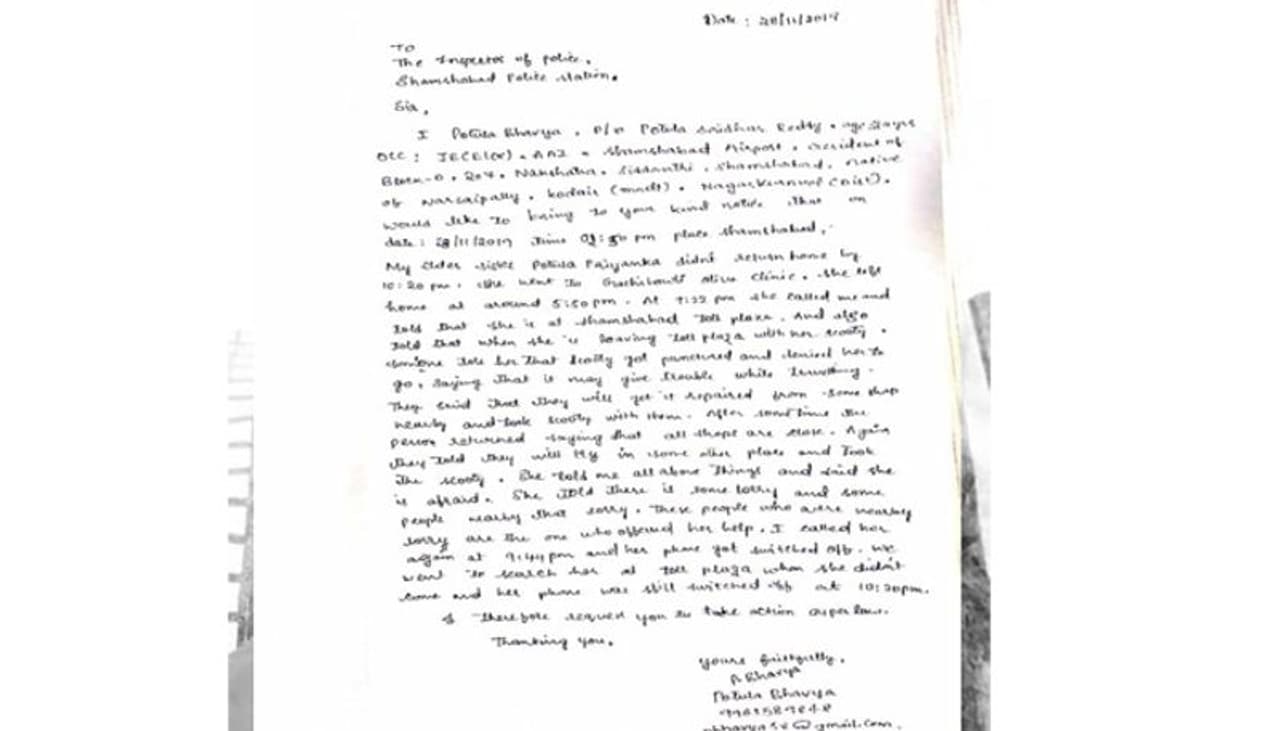 Date : 28/11/2019
To
The Inspector of police,
Shamshabad Police station.
Sir,
I Potula Bhavya . D/o Potula Sridhar Reddy .
OCC : . AAI . Shamshabad Airport . resident of
Block-D . 204 . Nakshatra . . Shamshabad, native
of Narsaipally, kodair (mndl) . Nagarkurnool (Dist).
would like to bring to your kind notice that on
date : 28/11/2019 Time pm place Shamshabad,
My elder sister Potula Priyanka didnt return home by
10:20 pm . she went to Gachibowli clinic . she left
home at around 5:50 pm . At 9:22 pm she called me and
told that she is at shamshabad toll plaza . And also
told that when she is leaving toll plaza with her scooty .
someone told her that scooty got punctured and denied her to
go, saying that it may give trouble while travelling .
They said that they will get it repaired from some shop
nearby and took scooty with them . After sometime the
person returned saying that all shops are close . Again
they told they will try in some other place and took
the scooty . She told me all above things and said she
is afraid . She told there is some lorry and some
people nearby that lorry . These people who were nearby
lorry are the one who offered her help . I called her
again at 9:44 pm and her phone got switched off . we
went to search her at toll plaza when she didn't
come and her phone was still switched off at 10:20pm.
I therefore request you to take action as per law.
Thanking you.
yours faithfully,
P Bhavya
Potula Bhavya
@gmail.com.